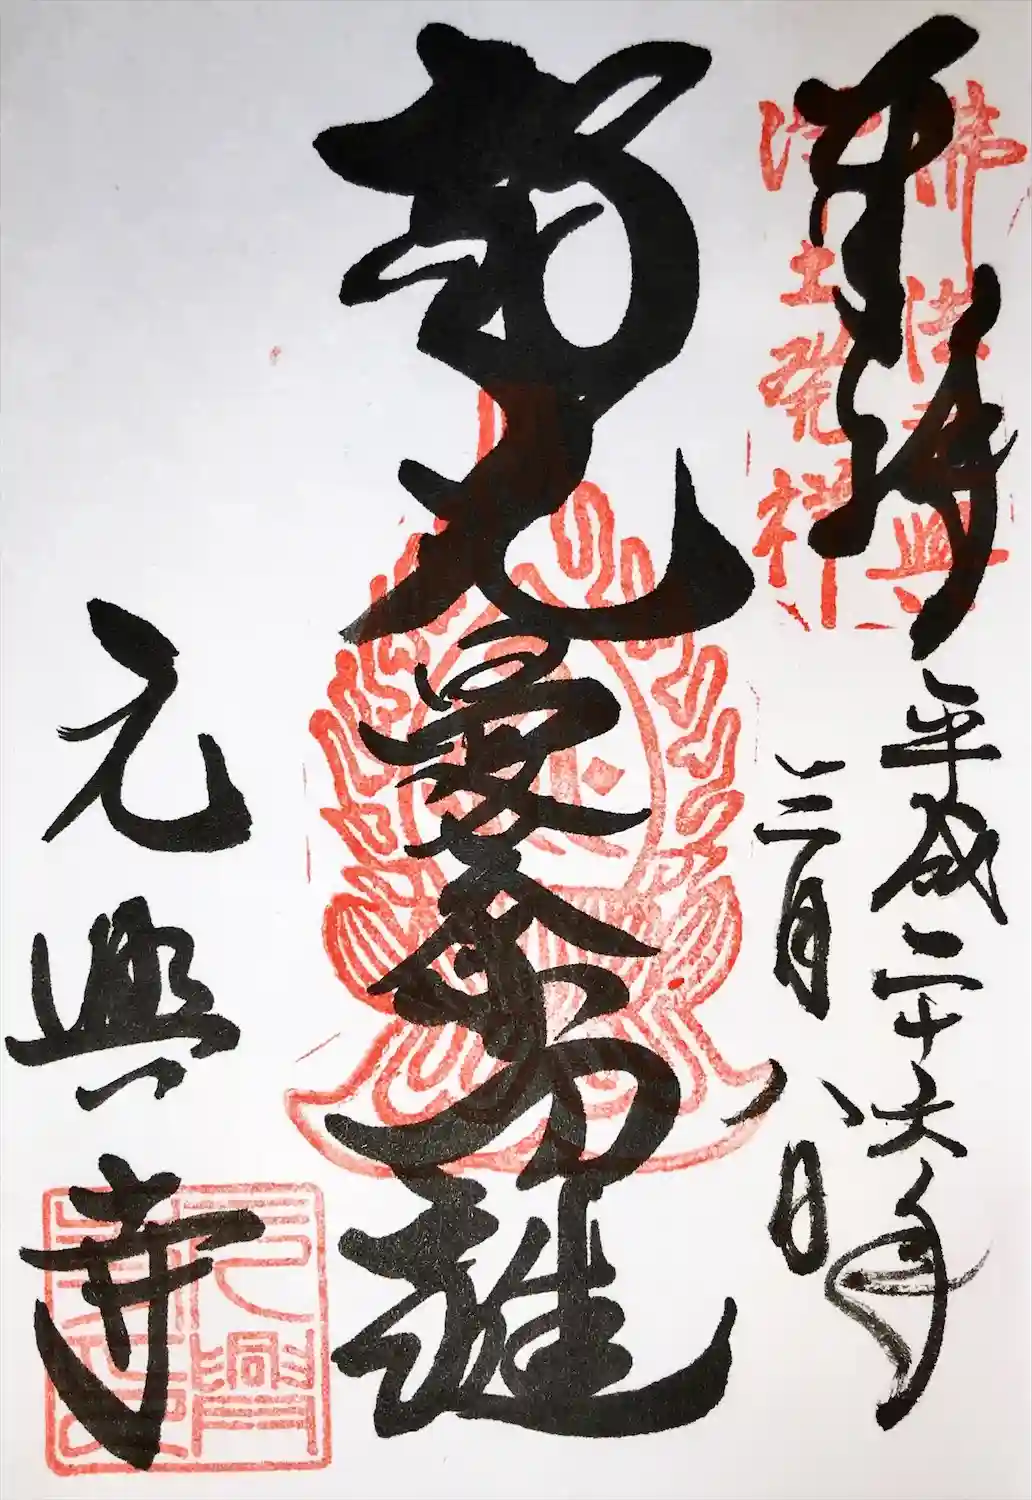 佛法元興
浄土発祥
奉拝
平成二十六年
三月八日
智光曼荼羅
元興寺